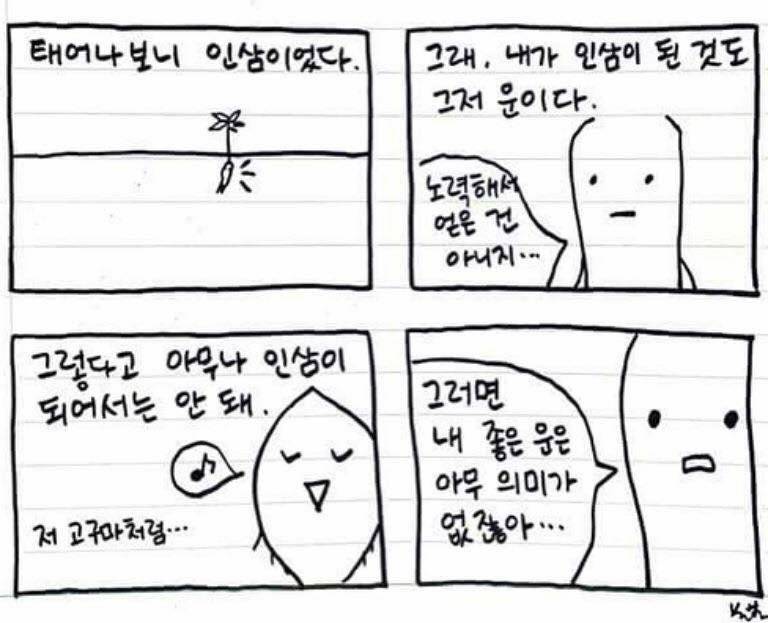 태어나보니 인삼이었다.
그래. 내가 인삼이 된 것도
그저 운이다.
노력해서
얻은 건
아니지...
그렇다고 아무나 인삼이
되어서는 안 돼.
저 고구마처럼...
그러면
내 좋은 운은
아무 의미가
없잖아...